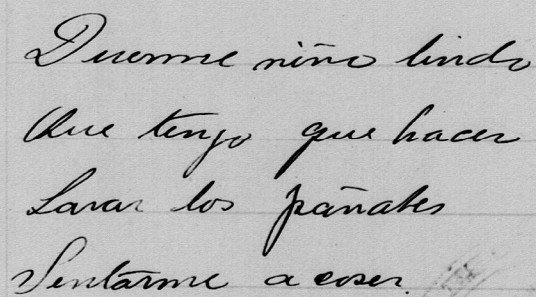 Duerme niño lindo
Que tengo que hacer
Lavar los pañales
Sentarme a coser.